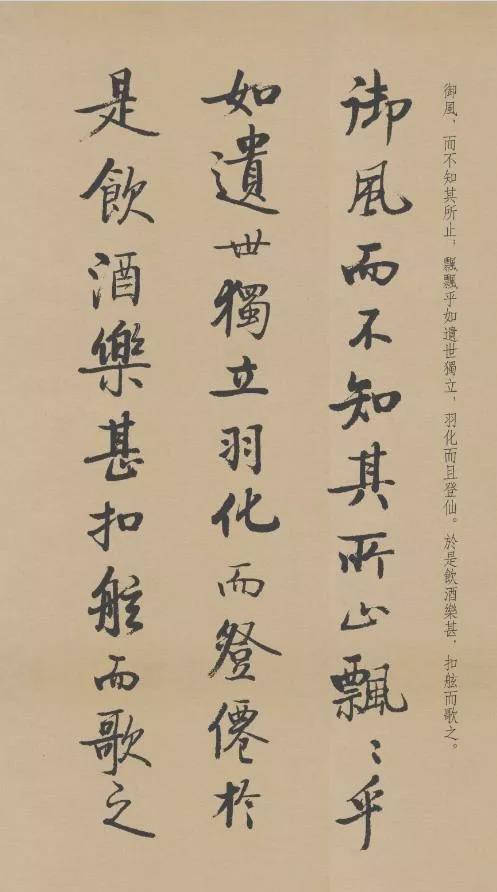 御風，而不知其所止，飄飄乎如遺世獨立，羽化而且登仙。於是飲酒樂甚，扣舷而歌之。
御風而不知其所止飄〻乎
如遺世獨立羽化而登僊於
是飲酒樂甚扣舷而歌之